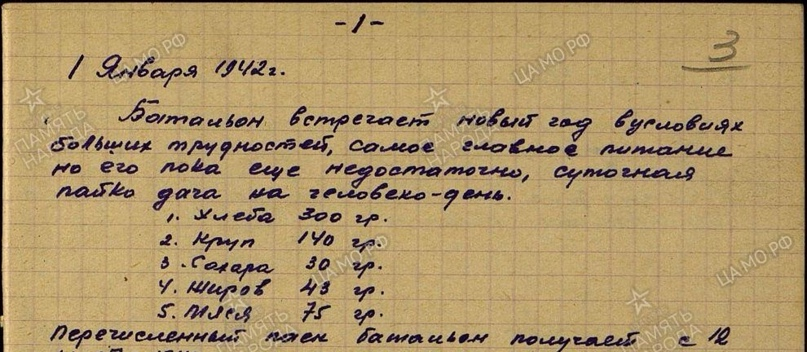 -1-
3
1 Января 1942г.
Батальон встречает новый год вусловиях
больших трудностей, самое главное питание
но его пока еще недостаточно, суточная
пайко дача на человеко-день.
1. Хлеба 300 гр.
2. Круп 140 гр.
3. Сахара 30 гр.
4. Жиров 43 гр.
5. Мяса 75 гр.
Перечисленный паек батальон получает с 12
ПАМЯТЬ НАРОДА
ЦАМО.РФ